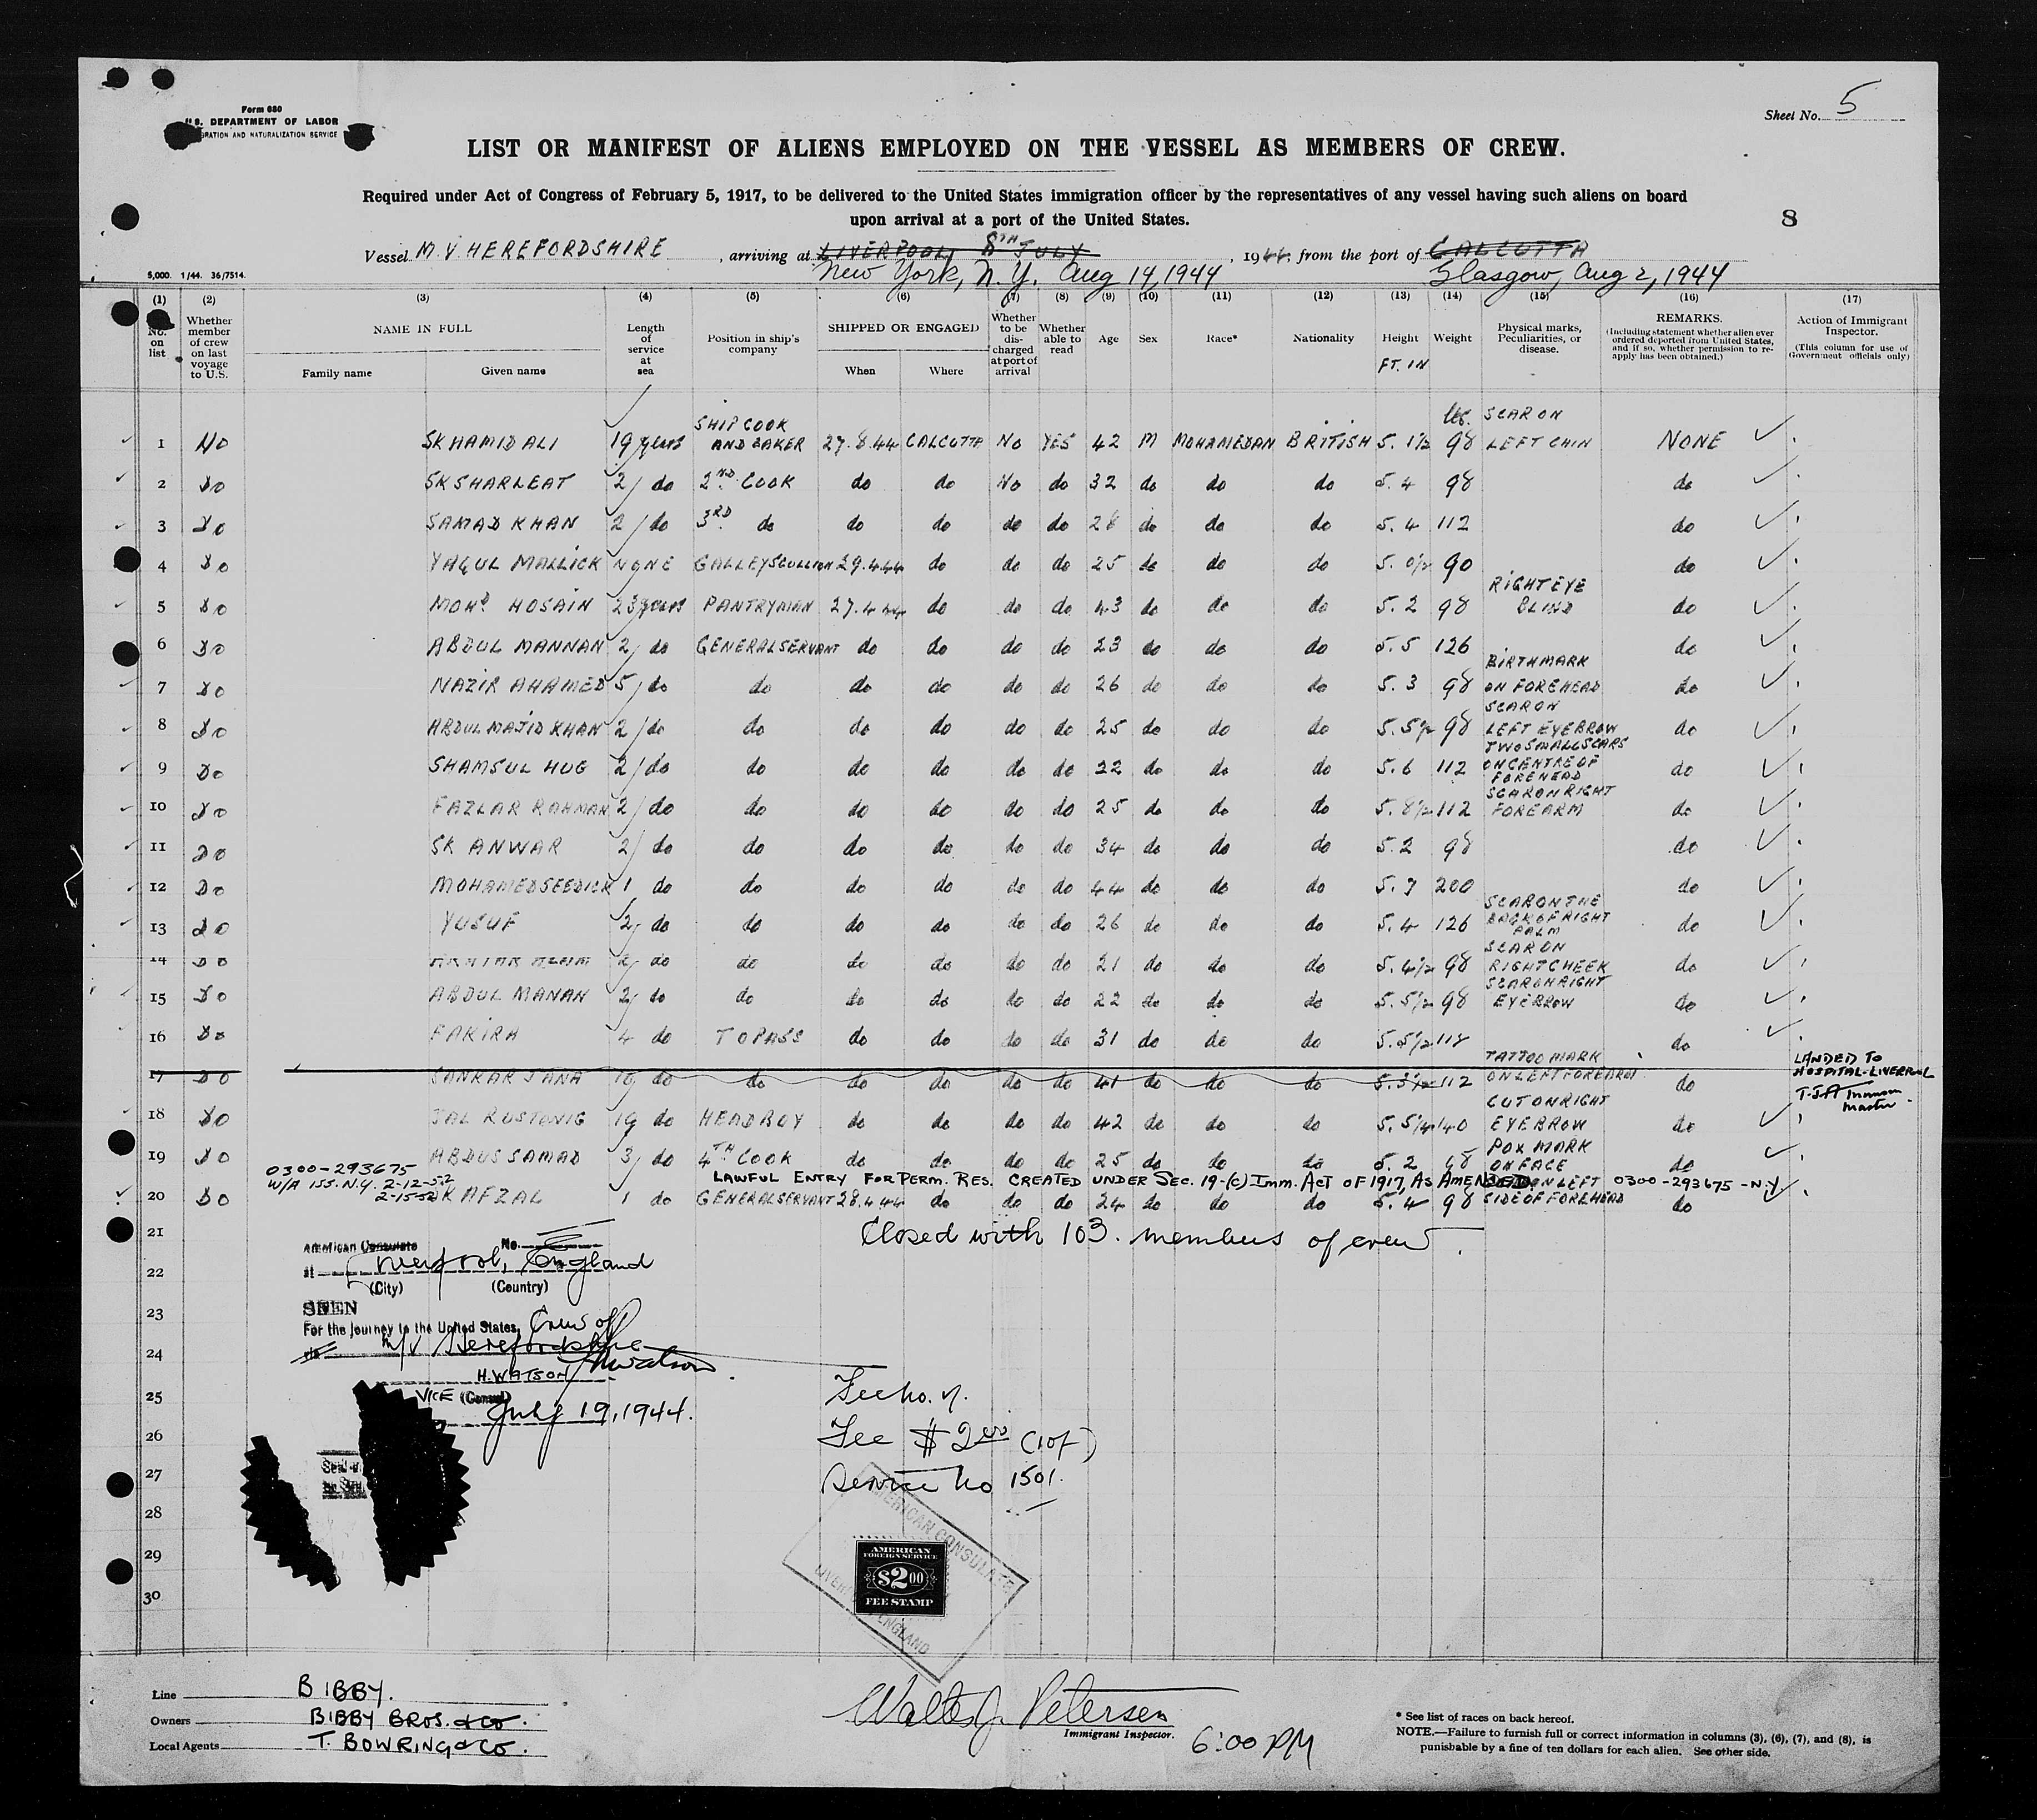 Form 680
U.S. DEPARTMENT OF LABOR
IMMIGRATION AND NATURALIZATION SERVICE
Sheet No. 5
LIST OR MANIFEST OF ALIENS EMPLOYED ON THE VESSEL AS MEMBERS OF CREW.
Required under Act of Congress of February 5, 1917, to be delivered to the United States immigration officer by the representatives of any vessel having such aliens on board
upon arrival at a port of the United States.
8
Vessel M.V. HEREFORDSHIRE, arriving at LIVERPOOL 8TH JULY, 1944, from the port of CALCUTTA
5,000. 1/44. 36/7514.
New York, N.Y. Aug 14, 1944 Glasgow, Aug 2, 1944
(1) No. on list
(2) Whether member of crew on last voyage to U.S.
(3) NAME IN FULL Family name Given name
(4) Length of service at sea
(5) Position in ship's company
(6) SHIPPED OR ENGAGED When Where
(7) Whether to be discharged at port of arrival
(8) Whether able to read
(9) Age
(10) Sex
(11) Race*
(12) Nationality
(13) Height FT. IN
(14) Weight
(15) Physical marks, Peculiarities, or disease.
(16) REMARKS. (Including statement whether alien ever ordered deported from United States, and if so, whether permission to reapply has been obtained.)
(17) Action of Immigrant Inspector. (This column for use of Government officials only)
1 NO SK HAMID ALI 19 years SHIP COOK AND BAKER 27.8.44 CALCUTTA NO YES 42 M MOHAMEDAN BRITISH 5. 1½ 98 lbs. SCAR ON LEFT CHIN NONE
2 Do SK SHARLEAT 2 do 2ND COOK do do No do 32 do do do 5. 4 98 do
3 Do SAMAD KHAN 2 do 3RD do do do do do 28 do do do 5. 4 112 do
4 Do YAQUL MALLICK NONE GALLEY SCULLION 29.4.44 do do do 25 do do do 5. 0½ 90 do
5 Do MOHD HOSAIN 23 years PANTRYMAN 27.4.44 do do do 43 do do do 5. 2 98 RIGHT EYE BLIND do
6 Do ABDUL MANNAN 2 do GENERAL SERVANT do do do do 23 do do do 5. 5 126 do
7 Do NAZIR AHAMED 5 do do do do do do 26 do do do 5. 3 98 BIRTHMARK ON FOREHEAD do
8 Do ABDUL MAJID KHAN 2 do do do do do do 25 do do do 5. 5½ 98 SCAR ON LEFT EYEBROW do
9 Do SHAMSUL HUG 2 do do do do do do 22 do do do 5. 6 112 TWO SMALL SCARS ON CENTRE OF FOREHEAD do
10 Do FAZLAR RAHMAN 2 do do do do do do 25 do do do 5. 8½ 112 SCAR ON RIGHT FOREARM do
11 Do SK ANWAR 2 do do do do do do 34 do do do 5. 2 98 do
12 Do MOHAMED SEEDICK 1 do do do do do do 44 do do do 5. 7 200 do
13 Do YUSUF 2 do do do do do do 26 do do do 5. 4 126 SCAR ON THE BACK OF RIGHT PALM do
14 Do 2 do do do do do do 21 do do do 5. 4½ 98 SCAR ON RIGHT CHEEK do
15 Do ABDUL MANAN 2 do do do do do do 22 do do do 5. 5½ 98 SCAR ON RIGHT EYEBROW do
16 Do FAKIRA 4 do TOPASS do do do do 31 do do do 5. 5½ do
17 Do SANKAR JANA do do do do do do 41 do do do 5. 3½ 112 TATTOO MARK ON LEFT FOREARM do LANDED TO HOSPITAL-LIVERPOOL
Master.
18 Do JAL RUSTONIG 19 do HEAD BOY do do do do 42 do do do 5. 5¼ 140 CUT ON RIGHT EYEBROW do
19 Do ABDUS SAMAD 3 do 4TH COOK do do do do 25 do do do 5. 2 98 POX MARK ON FACE do
0300-293675
W/A ISS. N.Y. 2-12-52
2-15-52
LAWFUL ENTRY FOR PERM. RES. CREATED UNDER SEC. 19-(c) IMM. ACT OF 1917, AS AMENDED. 0300-293675-N.Y.
20 Do SK AFZAL 1 do GENERAL SERVANT 28.4.44 do do do 24 do do do 5. 4 98 ON LEFT SIDE OF FOREHEAD do
21 Closed with 103. members of crew.
22
23
24
25
26
27
28
29
30
American Consulate No.
at Liverpool, England
(City) (Country)
SEEN
For the journey to the United States, Crew of
via M/V Herefordshire
H. WATSON HWatson
VICE (Consul)
July 19, 1944.
Fee No. 7.
Fee $2.00 (10/)
Service No 1501.
AMERICAN CONSULATE
LIVERPOOL ENGLAND
AMERICAN
FOREIGN SERVICE
$2.00
FEE STAMP
Line BIBBY.
Owners BIBBY BROS. & CO.
Local Agents T. BOWRING & CO.
Walter J. Petersen
Immigrant Inspector.
6:00 PM
* See list of races on back hereof.
NOTE.—Failure to furnish full or correct information in columns (3), (6), (7), and (8), is
punishable by a fine of ten dollars for each alien. See other side.